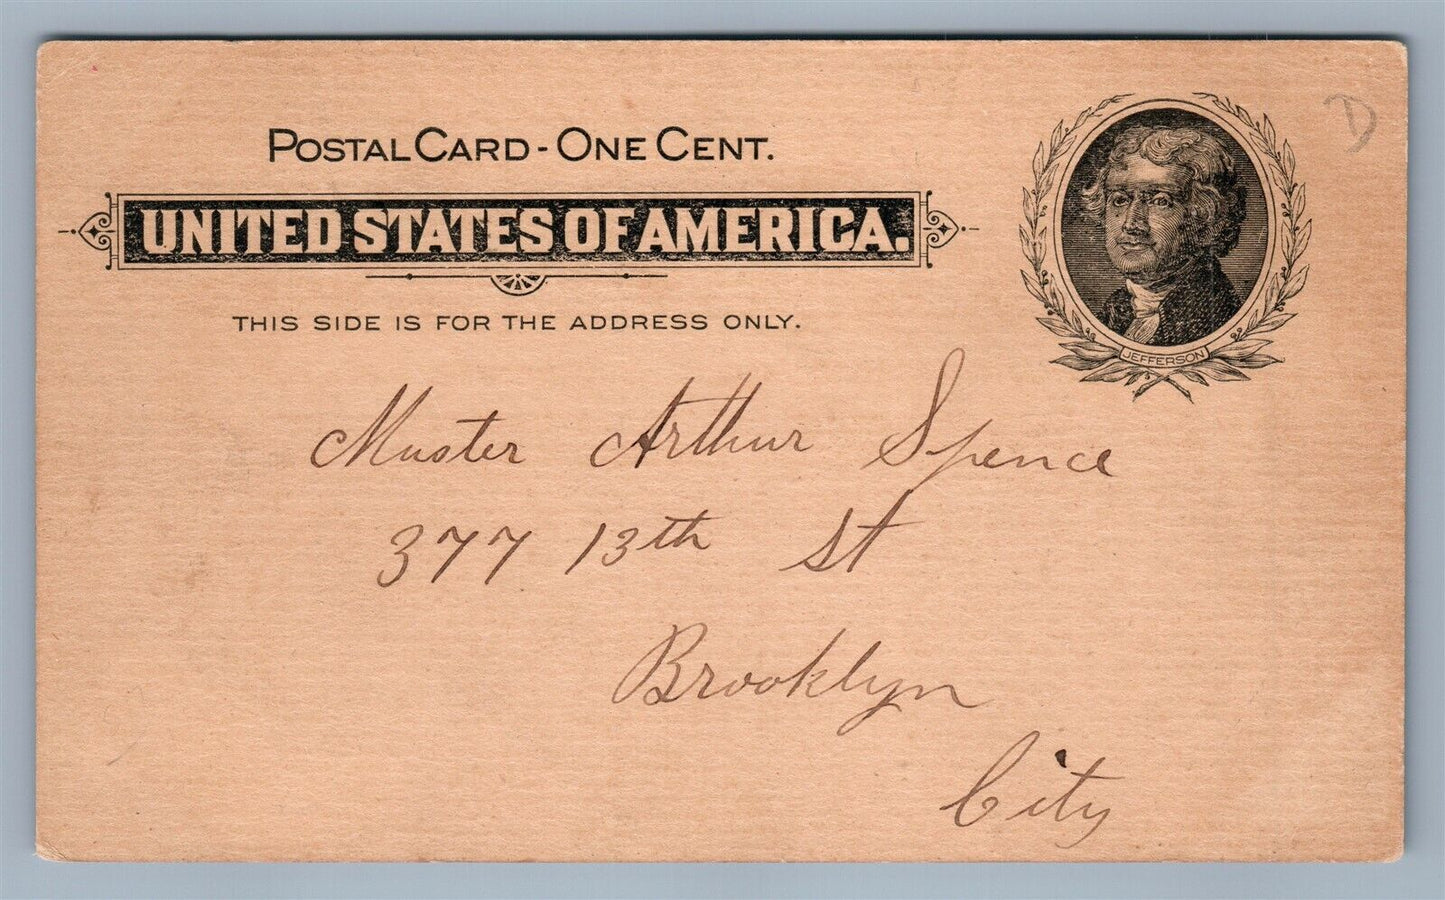 POSTAL CARD - ONE CENT.
UNITED STATES OF AMERICA.
THIS SIDE IS FOR THE ADDRESS ONLY.
JEFFERSON
D
Master Arthur Spence
377 13th St
Brooklyn
City